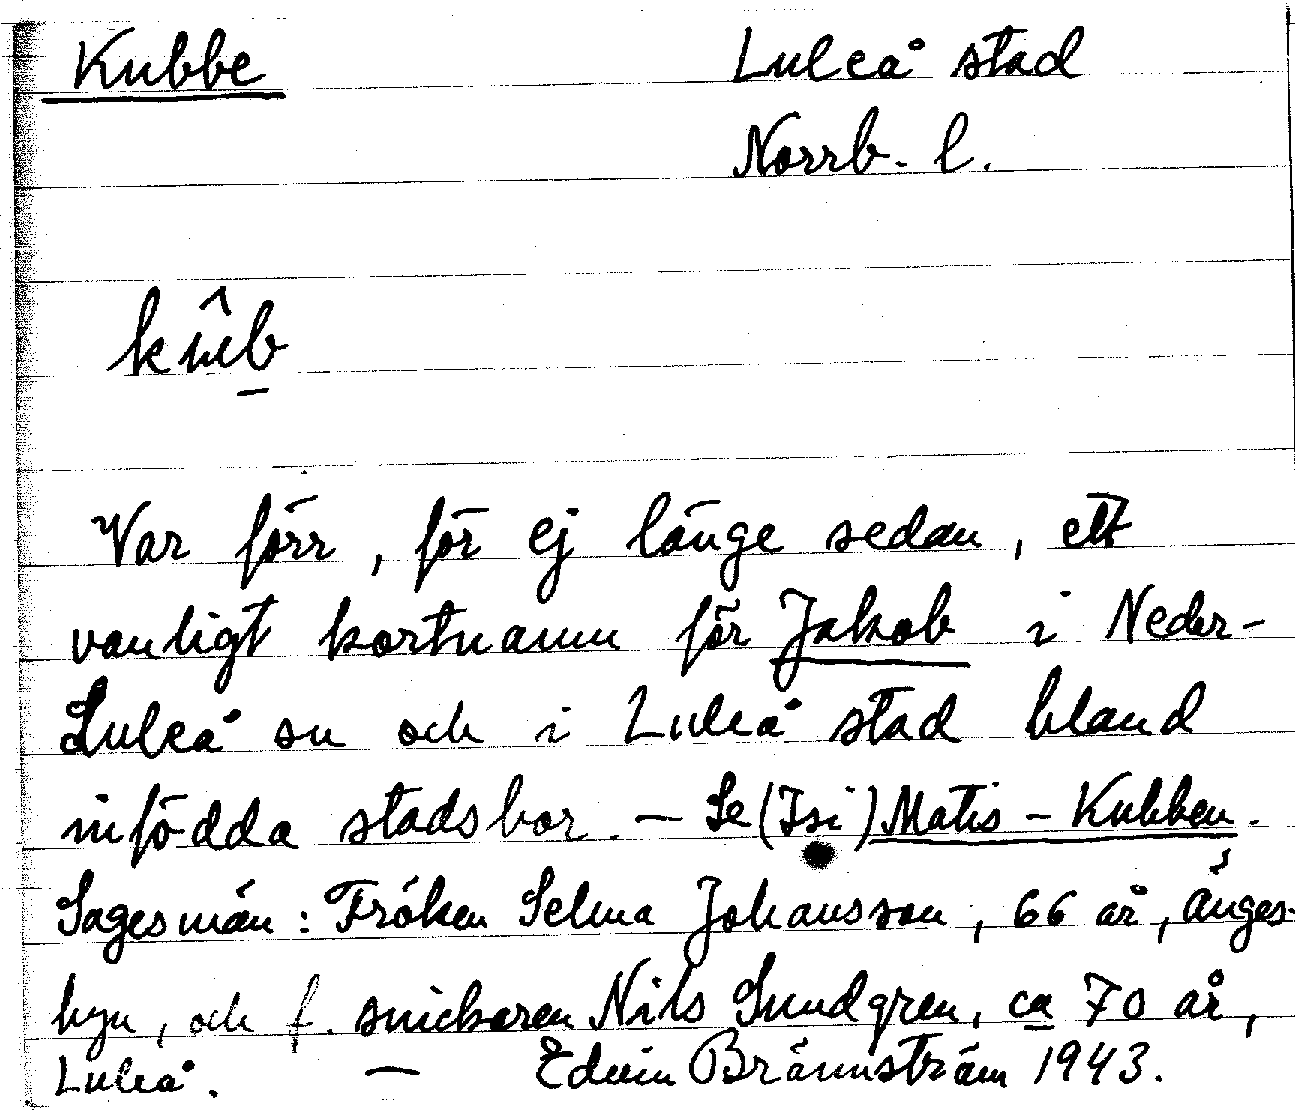 Kubbe Luleå stad
Norrb. l.
kûb̲
Var förr, för ej länge sedan, ett
vanligt kortnamn för Jakob i Neder-
Luleå sn och i Luleå stad bland
infödda stadsbor. — Se (Isi) Matis-Kubben.
Sagesmän: Fröken Selma Johansson, 66 år, Änges-
byn, och f. snickaren Nils Sundgren, ca 70 år,
Luleå. — Edvin Brännström 1943.